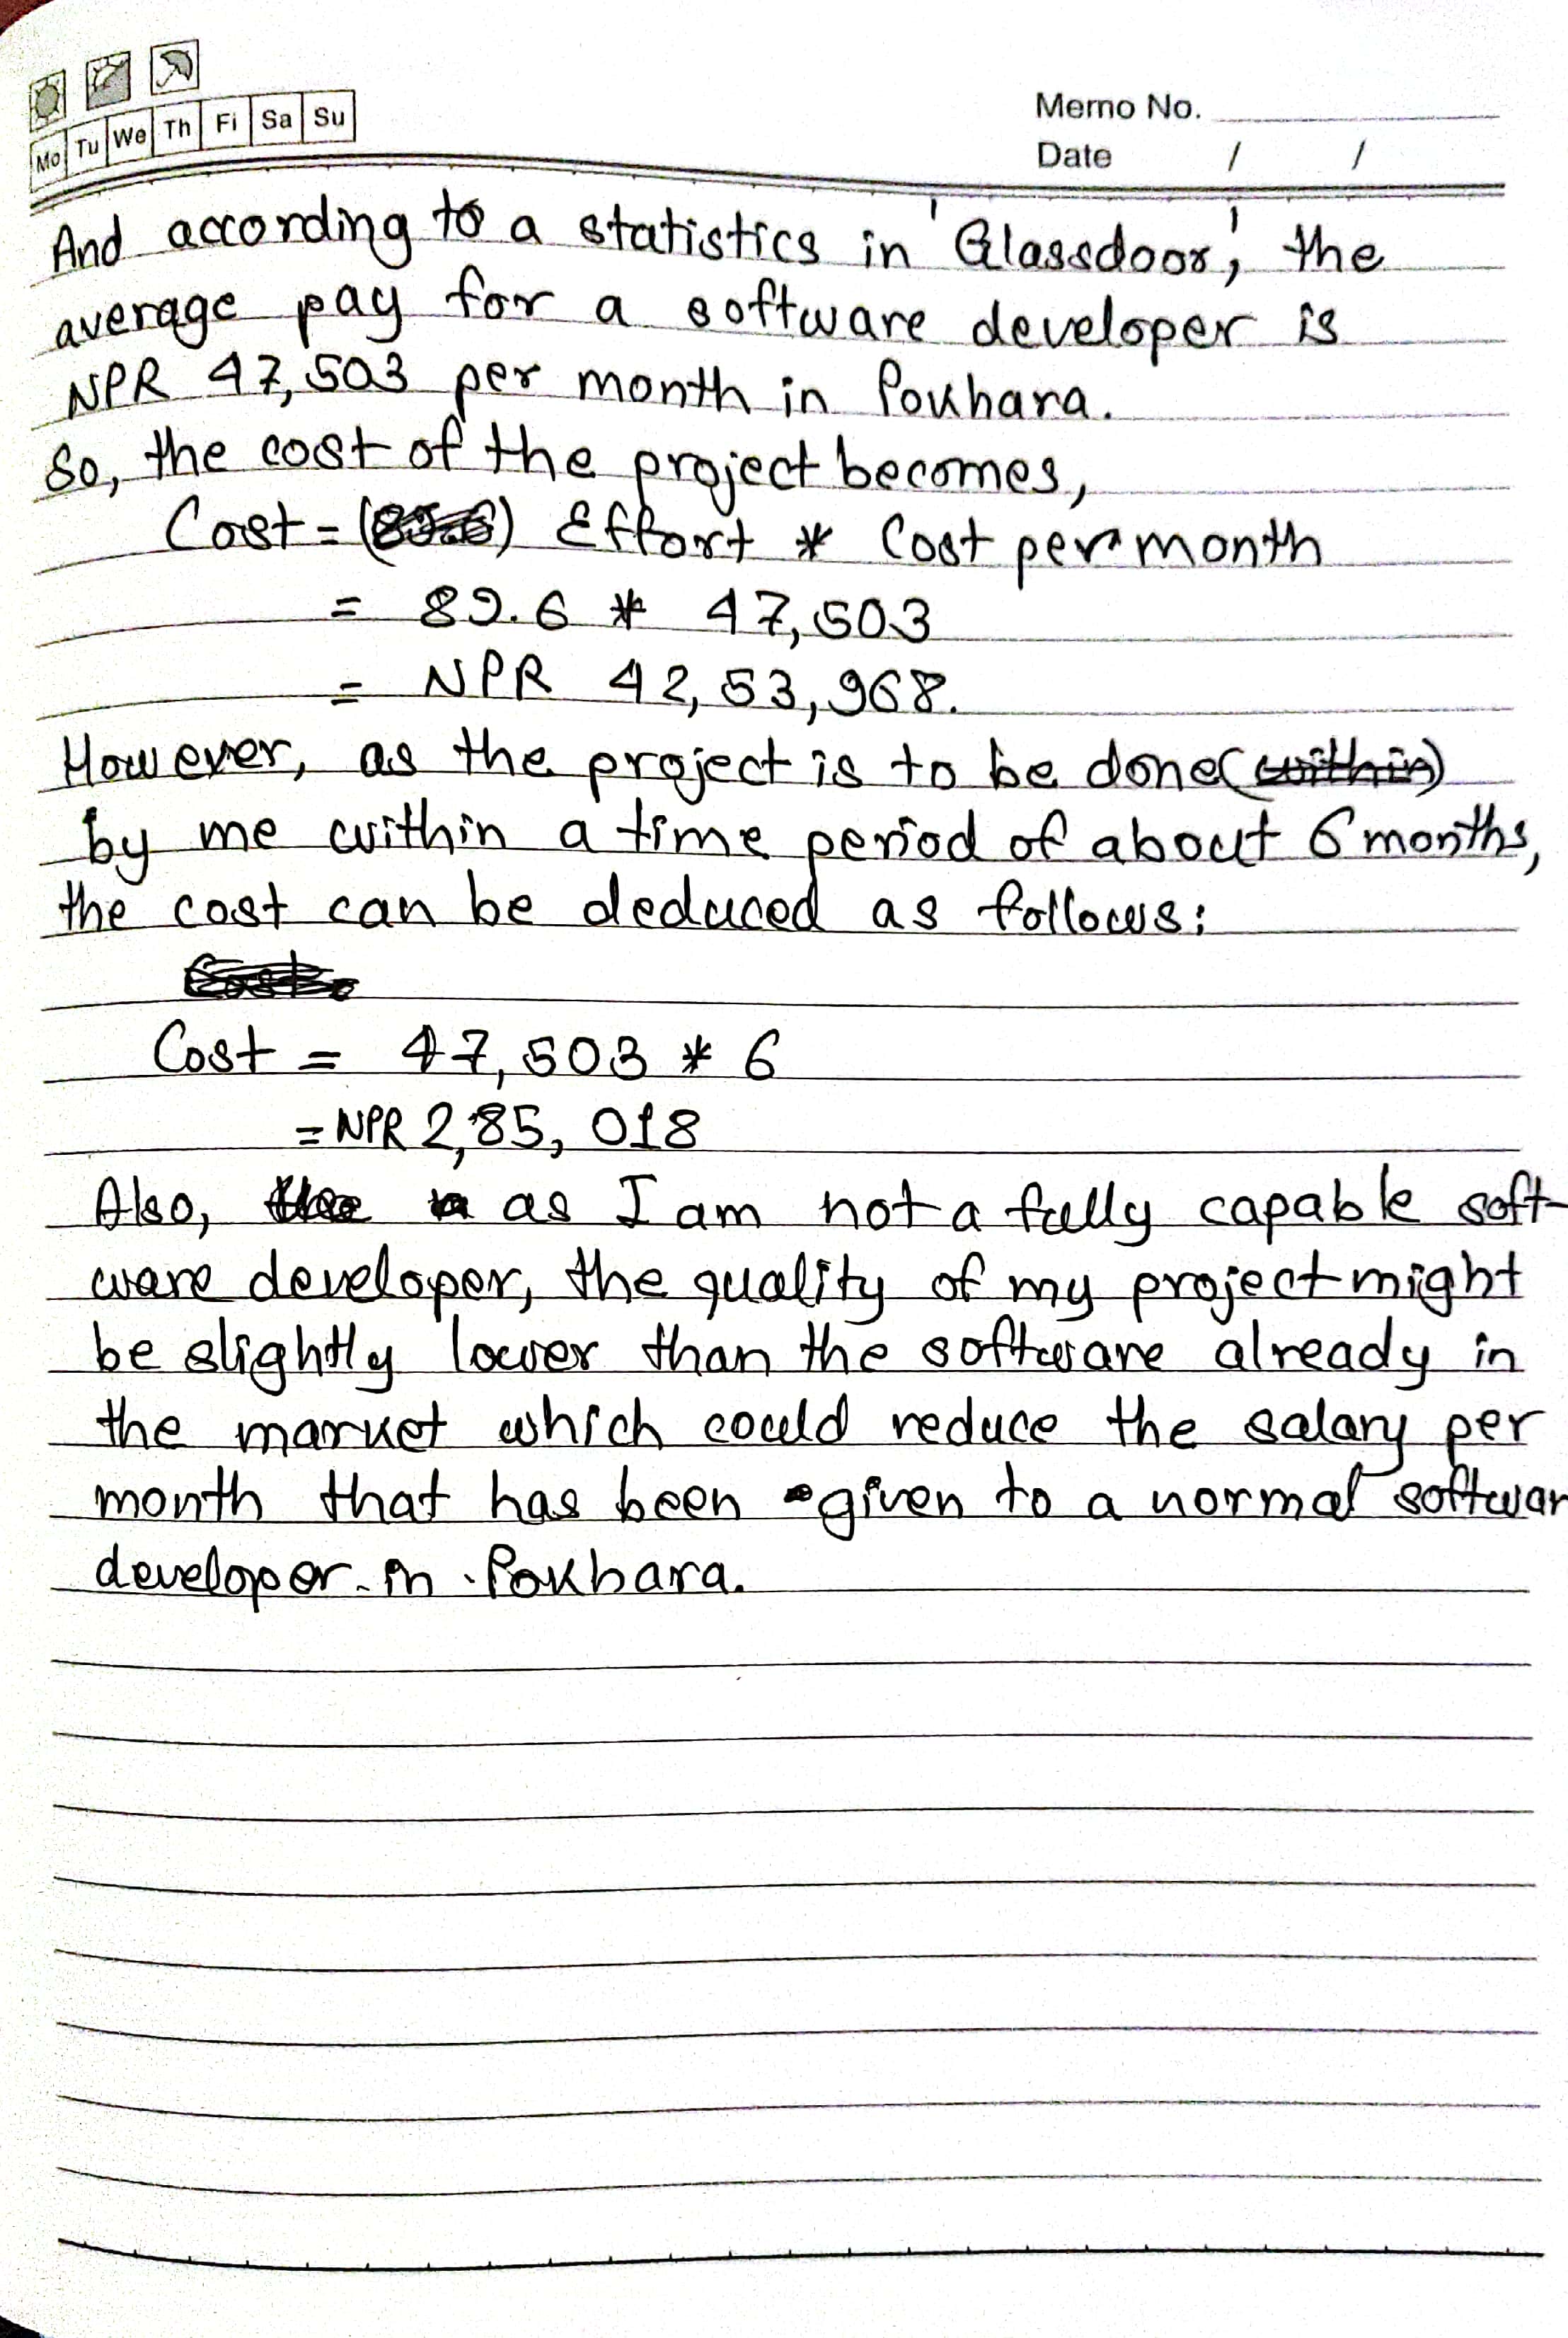 Mo Tu We Th Fi Sa Su
Memo No.
Date / /
And according to a statistics in 'Glassdoor', the
average pay for a software developer is
NPR 47,503 per month in Pokhara.
So, the cost of the project becomes,
Cost = Effort * Cost per month
= 89.6 * 47,503
= NPR 42,53,968.
However, as the project is to be done
by me within a time period of about 6 months,
the cost can be deduced as follows:
Cost = 47,503 * 6
= NPR 2,85,018
Also, as I am not a fully capable soft-
ware developer, the quality of my project might
be slightly lower than the software already in
the market which could reduce the salary per
month that has been given to a normal softwar
developer in Pokhara.